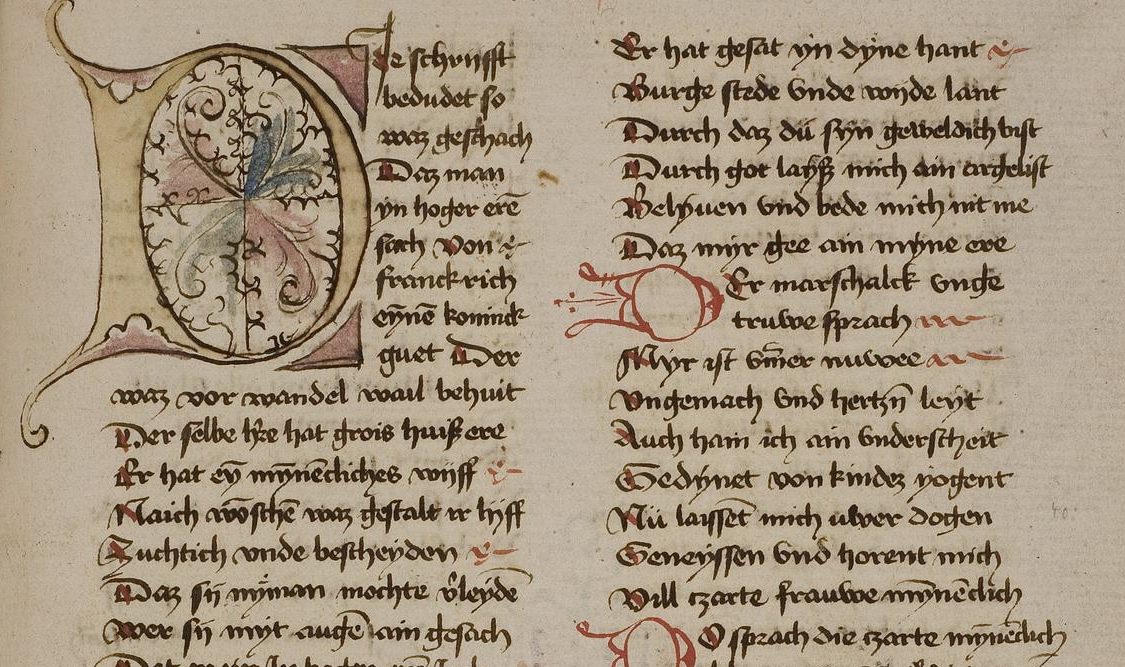 Die schrifft
bedudet so
waz geschach
Daz man
yn hoger erē
sach von
franckrich
eynē koninck
guet Der
waz vor wandel wail behuit
Der selbe hre hat grois huiß ere
Er hat eyn mynnēcliches wijff
Naich woschē waz gestalt ir lijff
Zuchtich vnde bescheyden
Daz sij nyman mochte vleydē
Wer sij myt augē ain gesach
Er hat gesat yn dyne hant
Burge stede vnde wyde lant
Durch daz du syn geweldich bist
Durch got layß mich ain argelist
Belyuen vnd bede mich nit me
Daz myr gee ain myne ere
Der marschalck vnge
truwe sprach
Myr ist vmer nuwee
Vngemach vnd hertzn leyt
Auch hain ich ain vnderscheit
Gedynet von kindez yogent
Nu laissēt mich uwer dogen
Geneyssen vnd horent mich
Vill czarte frauwe mynnēclich
Do sprach die czarte mynnēclich